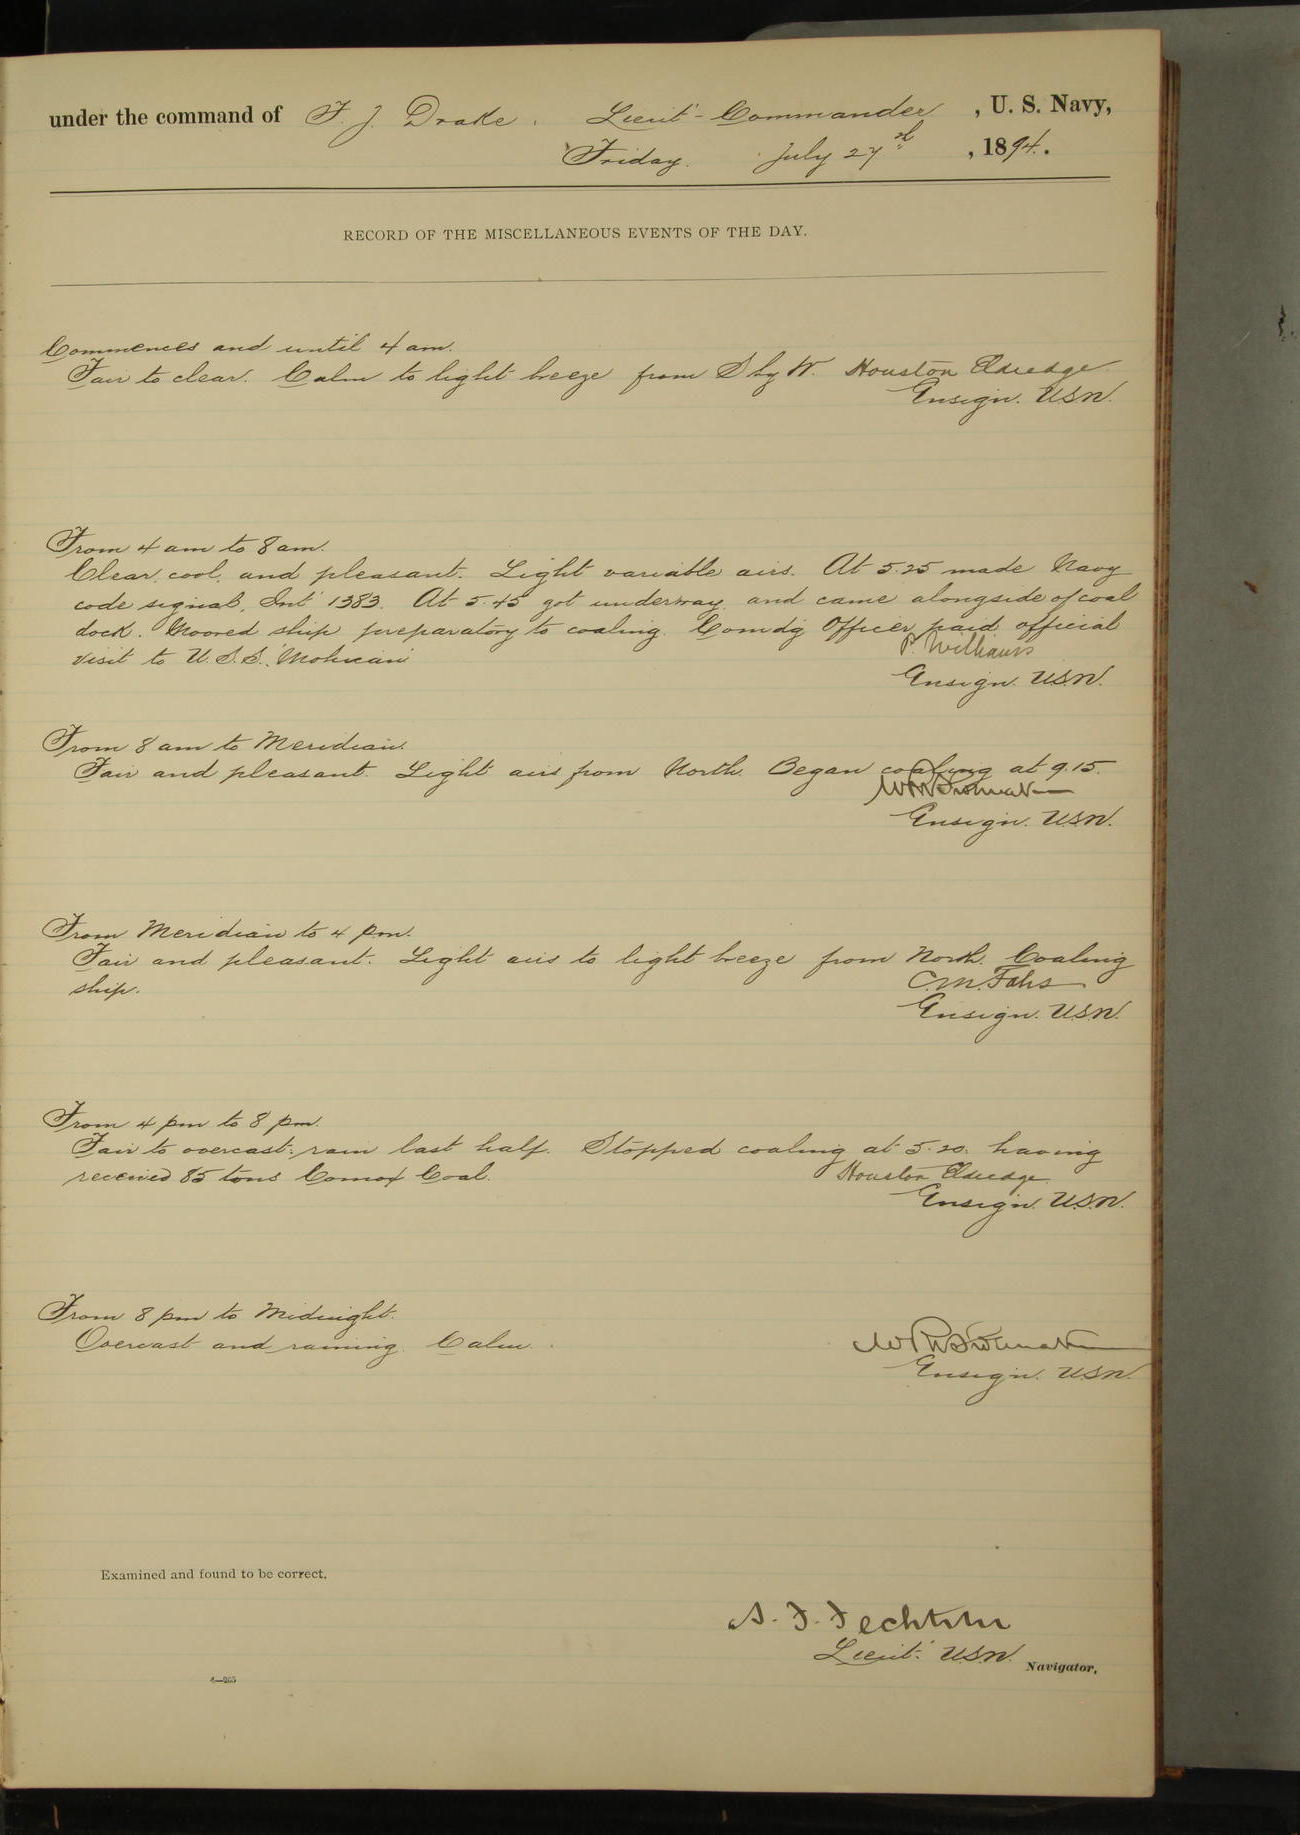 under the command of F. J. Drake, Lieut-Commander, U. S. Navy,
Friday. July 27th, 1894.
RECORD OF THE MISCELLANEOUS EVENTS OF THE DAY.
Commences and until 4 am.
Fair to clear. Calm to light breeze from S by W. Houston Eldredge
Ensign. U.S.N.
From 4 am to 8 am.
Clear, cool, and pleasant. Light variable airs. At 5.25 made Navy
code signal, Int' 1383. At 5.45 got underway and came alongside of coal
dock. Moored ship preparatory to coaling. Comdg Officer paid official
visit to U.S.S. Mohican
P. Williams
Ensign. U.S.N.
From 8 am to Meridian.
Fair and pleasant. Light airs from North. Began coaling at 9.15.
Ensign. U.S.N.
From Meridian to 4 pm.
Fair and pleasant. Light airs to light breeze from North. Coaling
ship.
C.M. Fahs
Ensign. U.S.N.
From 4 pm to 8 pm.
Fair to overcast: rain last half. Stopped coaling at 5.20. having
received 85 tons Comox Coal.
Houston Eldredge
Ensign. U.S.N.
From 8 pm to Midnight.
Overcast and raining. Calm.
Ensign. U.S.N.
Examined and found to be correct.
A. F. Fechteler
Lieut. U.S.N. Navigator.